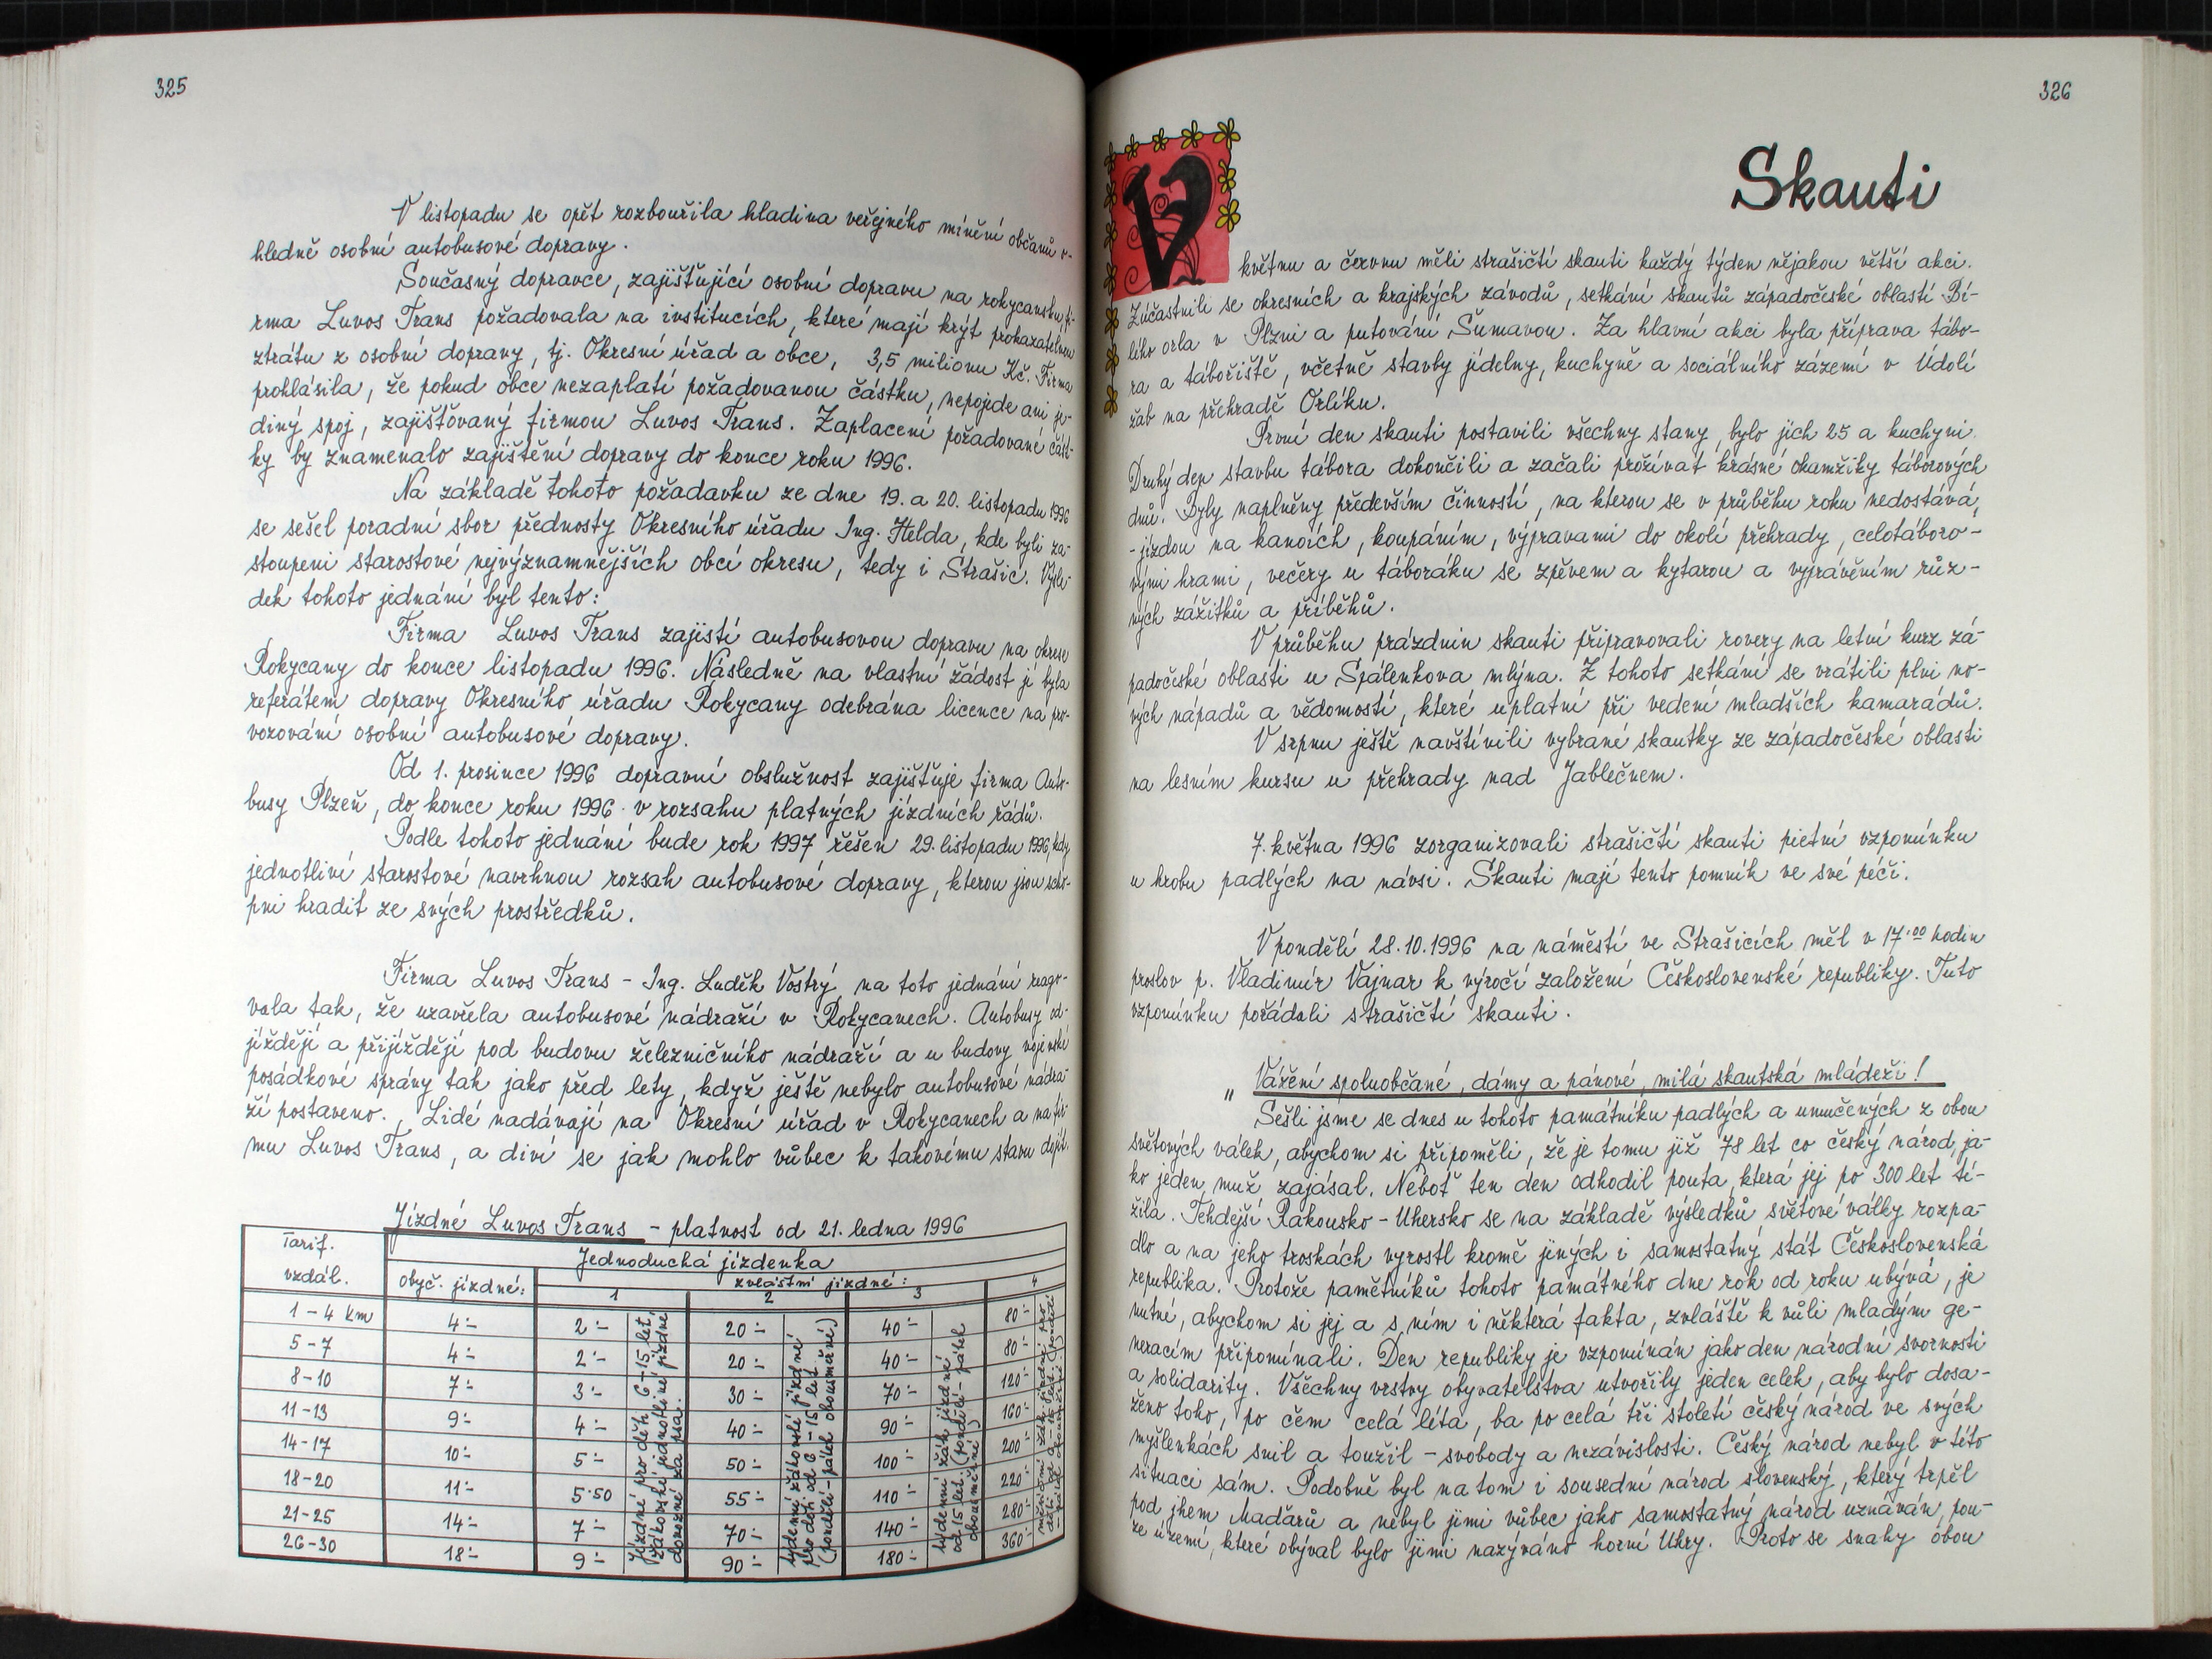 325
V listopadu se opět rozbouřila hladina veřejného mínění občanů v-
hledně osobní autobusové dopravy.
Současný dopravce, zajišťující osobní dopravu na rokycansku, fi-
rma Luvos Trans požadovala na institucích, které mají krýt prokazatelnou
ztrátu z osobní dopravy, tj. Okresní úřad a obce, 3,5 milionu Kč. Firma
prohlásila, že pokud obce nezaplatí požadovanou částku, nepojede ani je-
diný spoj, zajišťovaný firmou Luvos Trans. Zaplacení požadované část-
ky by znamenalo zajištění dopravy do konce roku 1996.
Na základě tohoto požadavku ze dne 19. a 20. listopadu 1996
se sešel poradní sbor přednosty Okresního úřadu Ing. Helda, kde byli za-
stoupeni starostové nejvýznamnějších obcí okresu, tedy i Strašic. Výsle-
dek tohoto jednání byl tento:
Firma Luvos Trans zajistí autobusovou dopravu na okrese
Rokycany do konce listopadu 1996. Následně na vlastní žádost jí byla
referátem dopravy Okresního úřadu Rokycany odebrána licence na pro-
vozování osobní autobusové dopravy.
Od 1. prosince 1996 dopravní obslužnost zajišťuje firma Auto-
busy Plzeň, do konce roku 1996 v rozsahu platných jízdních řádů.
Podle tohoto jednání bude rok 1997 řešen 29. listopadu 1996, kdy
jednotliví starostové navrhnou rozsah autobusové dopravy, kterou jsou scho-
pni hradit ze svých prostředků.
Firma Luvos Trans - Ing. Luděk Vostrý na toto jednání reago-
vala tak, že uzavřela autobusové nádraží v Rokycanech. Autobusy od-
jíždějí a přijíždějí pod budovu železničního nádraží a u budovy vojenské
posádkové správy tak jako před lety, když ještě nebylo autobusové nádra-
ží postaveno. Lidé nadávají na Okresní úřad v Rokycanech a na fir-
mu Luvos Trans, a diví se jak mohlo vůbec k takovému stavu dojít.
Jízdné Luvos Trans - platnost od 21. ledna 1996
Tarif. vzdál.
Jednoduchá jízdenka
obyč. jízdné: zvláštní jízdné:
1 2 3 4
1 - 4 km 4.- 2.- 20.- 40.- 80.-
5 - 7 4.- 2.- 20.- 40.- 80.-
8-10 7.- 3.- 30.- 70.- 120.-
11-13 9.- 4.- 40.- 90.- 160.-
14-17 10.- 5.- 50.- 100.- 200.-
18-20 11.- 5.50 55.- 110.- 220.-
21-25 14.- 7.- 70.- 140.- 280.-
26-30 18.- 9.- 90.- 180.- 360.-
Jízdné pro děti 6-15 let,
žákovské jednotlivé jízdné
dovozné za psa.
týdenní žákovské jízdné
pro děti od 6-15 let
(pondělí - pátek obousměrné)
týdenní žák. jízdné
od 15 let. (pondělí - pátek
obousměrné)
326
Skauti
V
květnu a červnu měli strašičtí skauti každý týden nějakou větší akci.
Zúčastnili se okresních a krajských závodů, setkání skautů západočeské oblasti Bí-
lého orla v Plzni a putování Šumavou. Za hlavní akci byla příprava tábo-
ra a tábořiště, včetně stavby jídelny, kuchyně a sociálního zázemí v Údolí
žab na přehradě Orlíku.
První den skauti postavili všechny stany, bylo jich 25 a kuchyni.
Druhý den stavbu tábora dokončili a začali prožívat krásné okamžiky táborových
dnů. Byly naplněny především činností, na kterou se v průběhu roku nedostává,
- jízdou na kanoích, koupáním, výpravami do okolí přehrady, celotáboro-
vými hrami, večery u táboráku se zpěvem a kytarou a vyprávěním růz-
ných zážitků a příběhů.
V průběhu prázdnin skauti připravovali rovery na letní kurz zá-
padočeské oblasti u Spálenkova mlýna. Z tohoto setkání se vrátili plni no-
vých nápadů a vědomostí, které uplatní při vedení mladších kamarádů.
V srpnu ještě navštívili vybrané skautky ze západočeské oblasti
na lesním kursu u přehrady nad Jablečnem.
7. května 1996 zorganizovali strašičtí skauti pietní vzpomínku
u hrobu padlých na návsi. Skauti mají tento pomník ve své péči.
V pondělí 28.10.1996 na náměstí ve Strašicích měl v 17.00 hodin
proslov p. Vladimír Vajnar k výročí založení Československé republiky. Tuto
vzpomínku pořádali strašičtí skauti.
„ Vážení spoluobčané, dámy a pánové, milá skautská mládeži!
Sešli jsme se dnes u tohoto památníku padlých a umučených z obou
světových válek, abychom si připoměli, že je tomu již 78 let co český národ, ja-
ko jeden muž zajásal. Neboť ten den odhodil pouta, která jej po 300 let tí-
žila. Tehdejší Rakousko - Uhersko se na základě výsledků světové války rozpa-
dlo a na jeho troskách vyrostl kromě jiných i samostatný stát Československá
republika. Protože pamětníků tohoto památného dne rok od roku ubývá, je
nutné, abychom si jej a s ním i některá fakta, zvláště k vůli mladým ge-
neracím připomínali. Den republiky je vzpomínán jako den národní svornosti
a solidarity. Všechny vrstvy obyvatelstva utvořily jeden celek, aby bylo dosa-
ženo toho, po čem celá léta, ba po celá tři století český národ ve svých
myšlenkách snil a toužil - svobody a nezávislosti. Český národ nebyl v této
situaci sám. Podobně byl na tom i sousední národ slovenský, který trpěl
pod jhem Maďarů a nebyl jimi vůbec jako samostatný národ uznáván, pou-
ze území, které obýval bylo jimi nazýváno horní Uhry. Proto se snahy obou